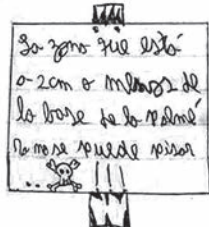 La zona que está
a 2cm o menos de
la base de la palme
ra no se puede pisar
...